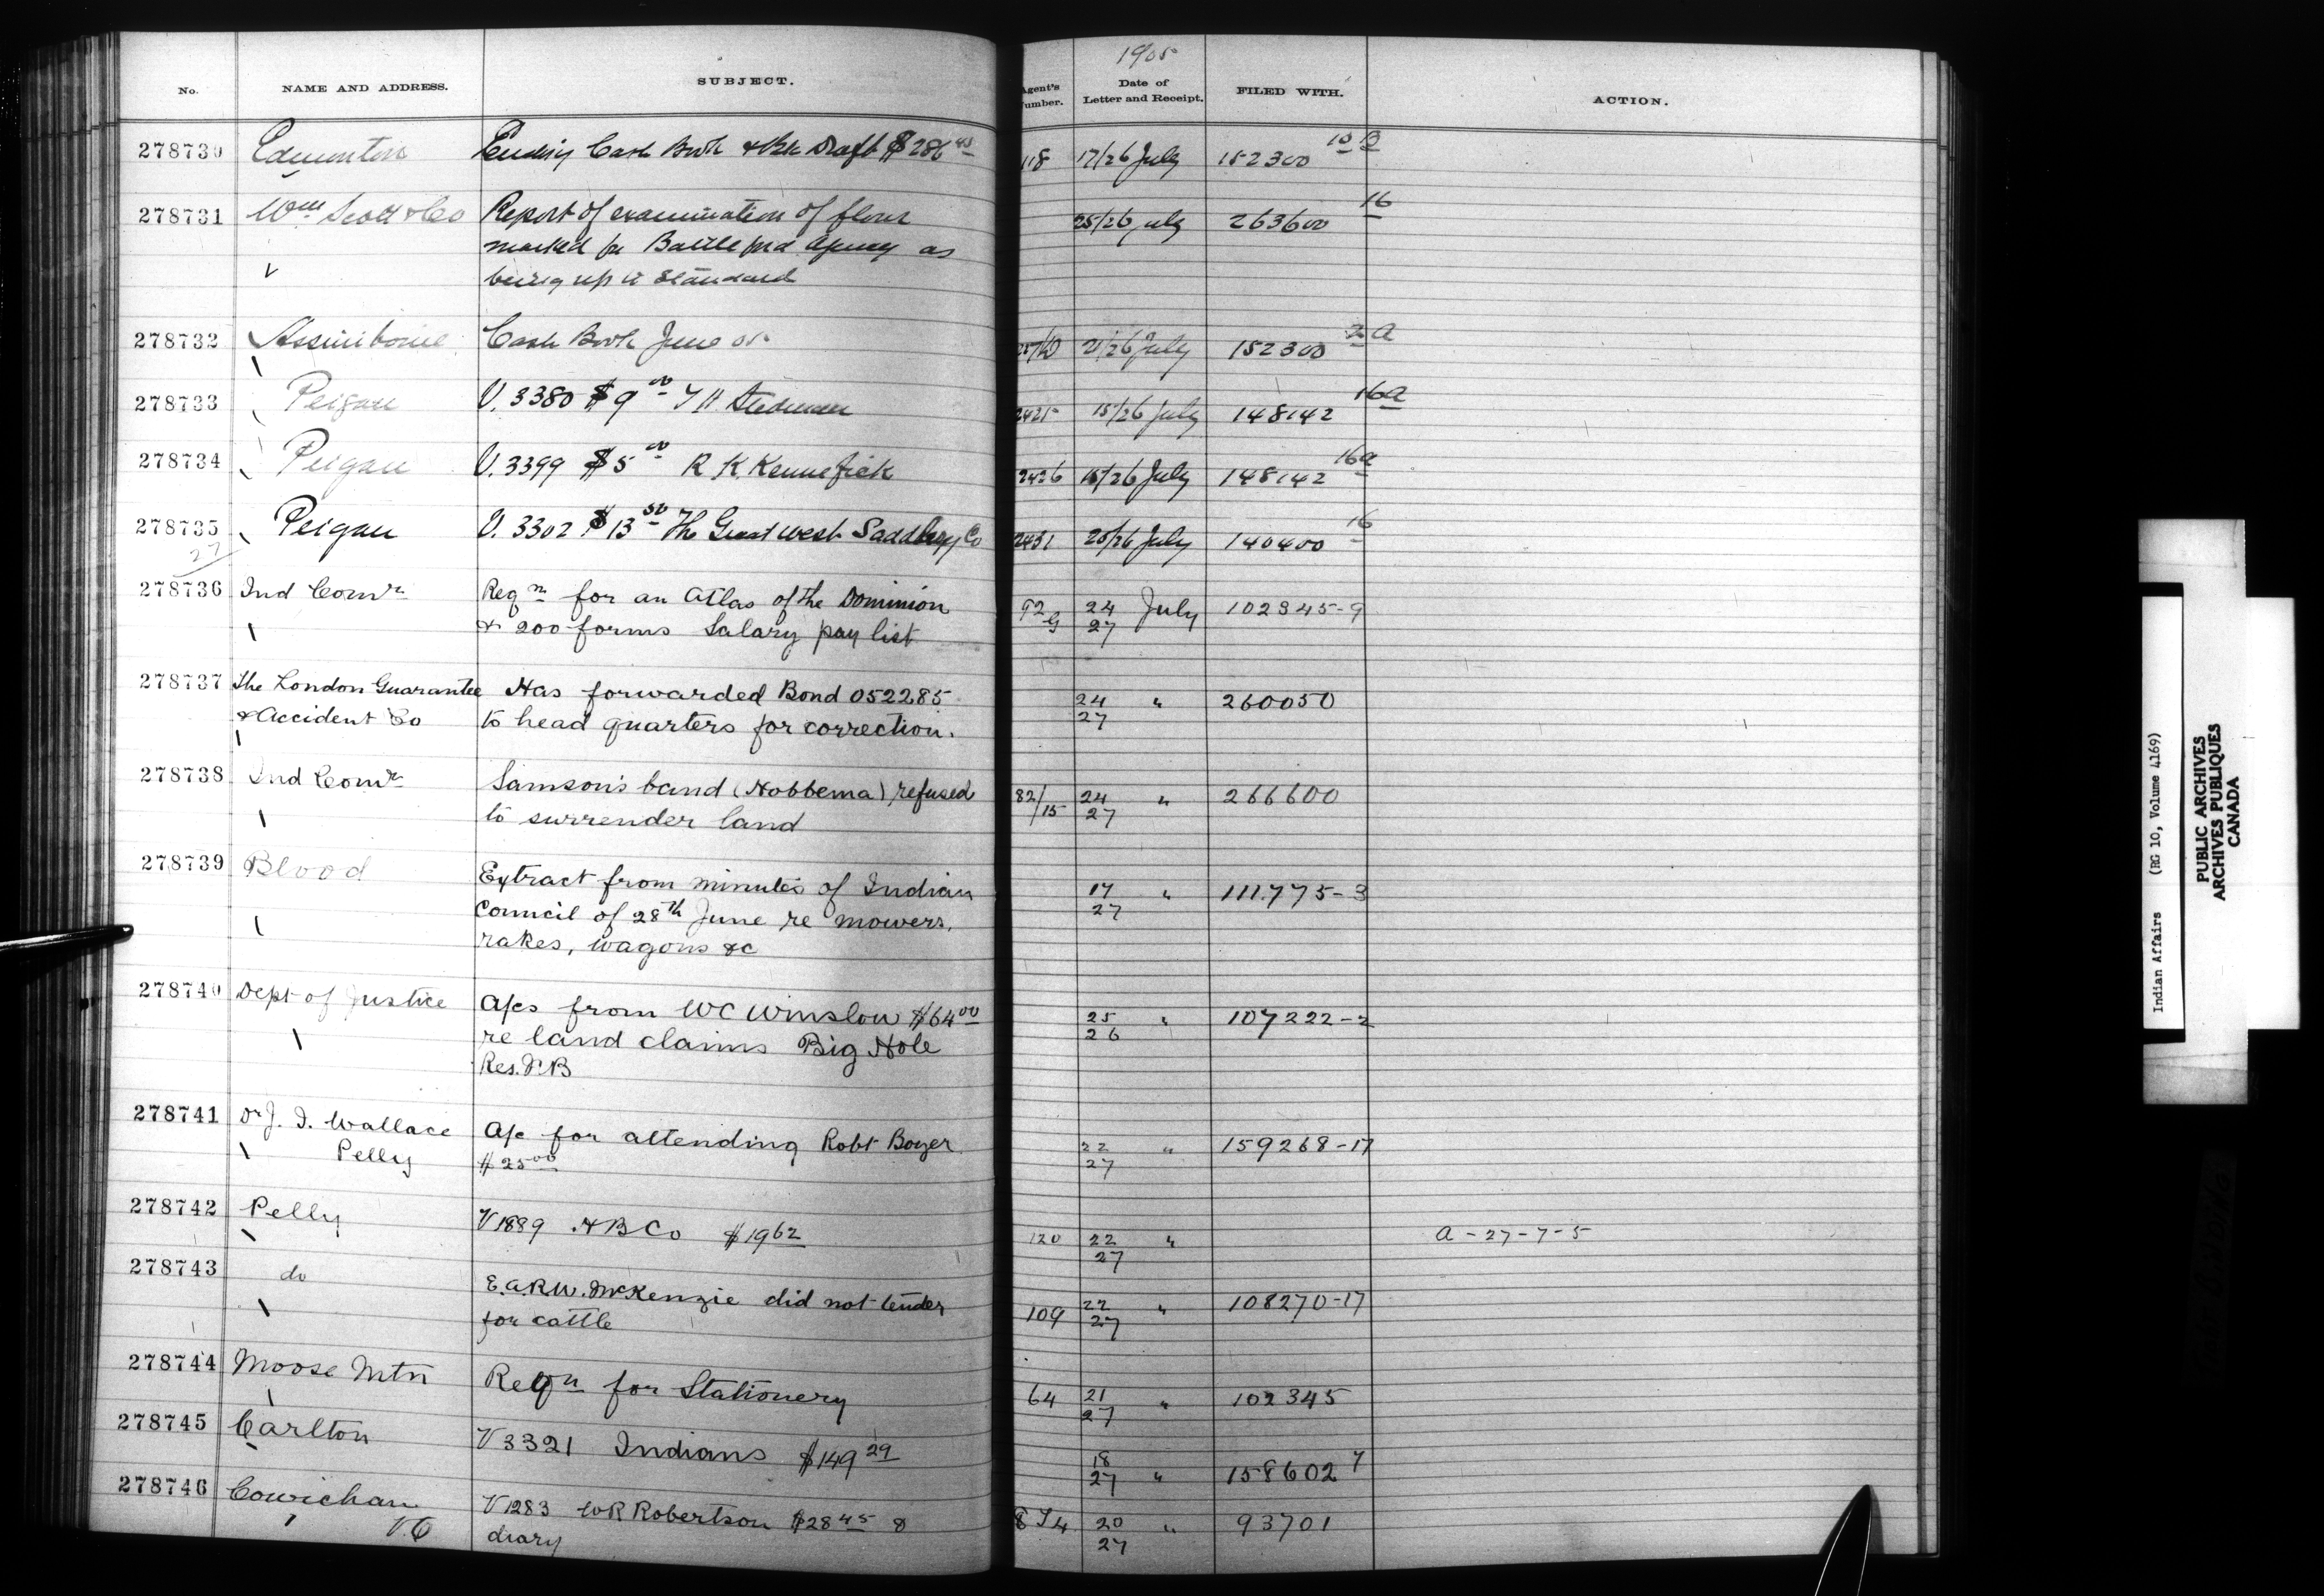 No. NAME AND ADDRESS. SUBJECT. Agent's Number. 1905 Date of Letter and Receipt. FILED WITH. ACTION.
278730 Edmonton Cash Book & Bk Draft $286 118 17/26 July 152300 10 B
278731 Wm Scott & Co Report of examination of flour 25/26 July 263600 16
marked for Battleford Agency as
being up to Standard
278732 Assiniboine Cash Book June 05 21/26 July 152300 2 A
278733 Peigan V. 3380 $9 00 Stedman 2425 15/26 July 148142 16a
278734 Peigan V. 3399 $5 00 R K. Kennefick 2426 15/26 July 148142 16a
278735 Peigan V. 3302 $13 50 The Great West Saddlery Co 2431 20/26 July 140400 16
27
278736 Ind Comr Reqn for an Atlas of the Dominion 92 G 24 July 102345-9
& 200 forms Salary pay list 27
278737 The London Guarantee Has forwarded Bond 052285 24 " 260050
& Accident Co to head quarters for correction. 27
278738 Ind Comr Samson's band (Hobbema) refused 82/15 24 " 266600
to surrender land 27
278739 Blood Extract from minutes of Indian 17 " 111.775-3
Council of 28th June re mowers, 27
rakes, wagons &c
278740 Dept of Justice A/cs from WC Winslow $64 00 25 " 107222-2
re land claims Big Hole 26
Res. N.B
278741 Dr J. I. Wallace A/c for attending Robt Boyer 22 " 159268-17
Pelly $25 00 27
278742 Pelly V 1889 H B Co $19 62 120 22 " A-27-7-5
27
278743 do E.A.R.W. McKenzie did not tender 109 22 " 108270-17
for cattle 27
278744 Moose Mtn Reqn for Stationery 64 21 " 102345
27
278745 Carlton V 3321 Indians $149 29 18 " 158602 7
27
278746 Cowichan V 1283 WR Robertson $28 45 & 20 " 93701
diary 27
Indian Affairs (RG 10, Volume 4169)
PUBLIC ARCHIVES
ARCHIVES PUBLIQUES
CANADA